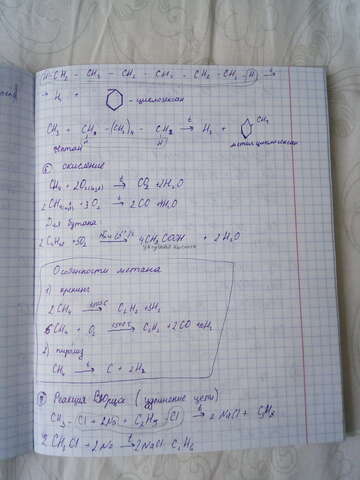 H-CH₂ - CH₂ - CH₂ - CH₂ - CH₂ - CH₂ (H) t→
→ H₂ + - циклогексан
CH₃ - CH₂ - (CH₂)₄ - CH₂ t→ H₂ + CH₃
H H
гептан метилциклогексан
окисление
CH₄ + 2O₂(изб) t→ CO₂ + 2H₂O
2CH₄ + 3O₂ t→ 2CO + 4H₂O
Для бутана
2C₄H₁₀ + 5O₂ → 4CH₃COOH + 2H₂O
уксусная кислота
Особенности метана
1) крекинг
2CH₄ 1500°C→ C₂H₂ + 3H₂
6CH₄ + O₂ 1500°C→ C₂H₂ + 2CO + 10H₂
2) пиролиз
CH₄ t→ C + 2H₂
Реакция Вюрца (удлинение цепи)
CH₃ - Cl + 2Na + C₂H₅ - Cl t→ 2NaCl + C₃H₈
2CH₃Cl + 2Na t→ 2NaCl + C₂H₆